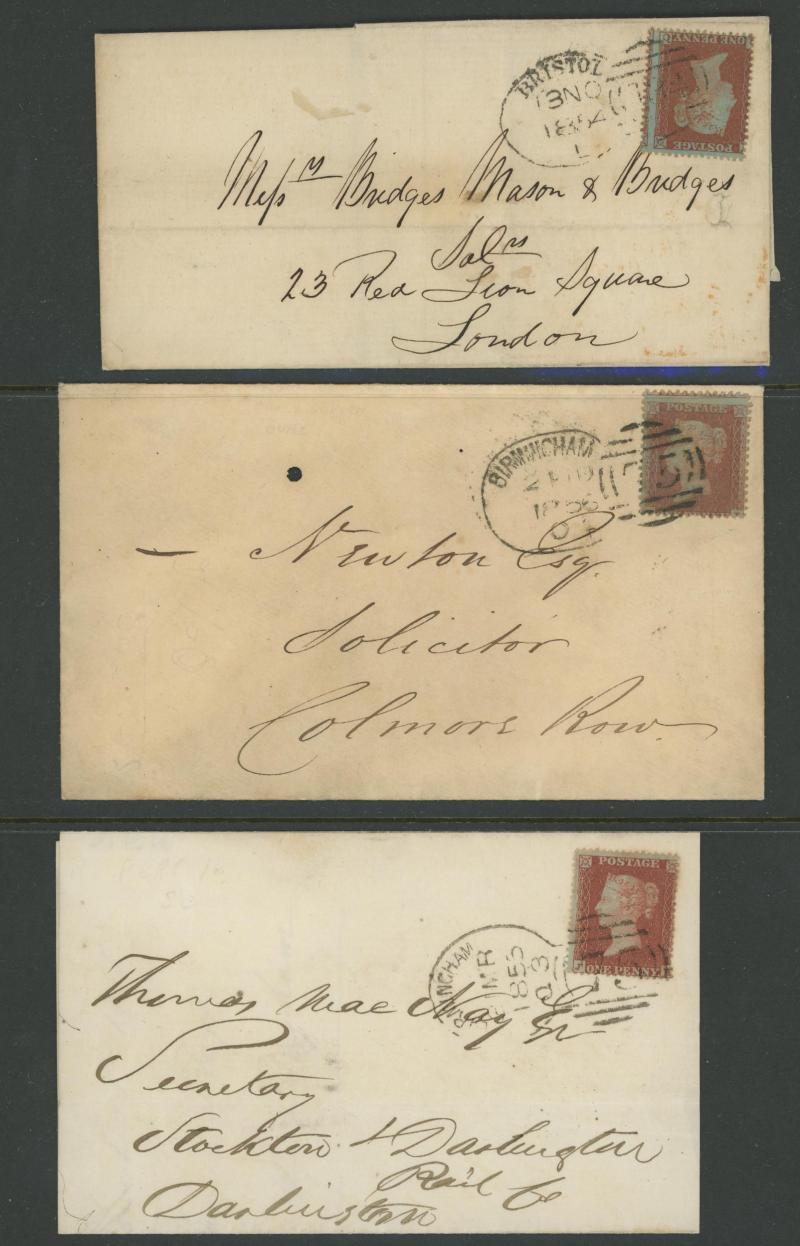 BRISTOL
13 NO
1854
ONE PENNY
POSTAGE
Messrs Bridges Mason & Bridges
Solrs
23 Red Lion Square
London
BIRMINGHAM
75
POSTAGE
Newton Esq.
Solicitor
Colmore Row
POSTAGE
ONE PENNY
MR
1855
Thomas Mac Nay Esqr
Secretary
Stockton & Darlington
Rail Co
Darlington